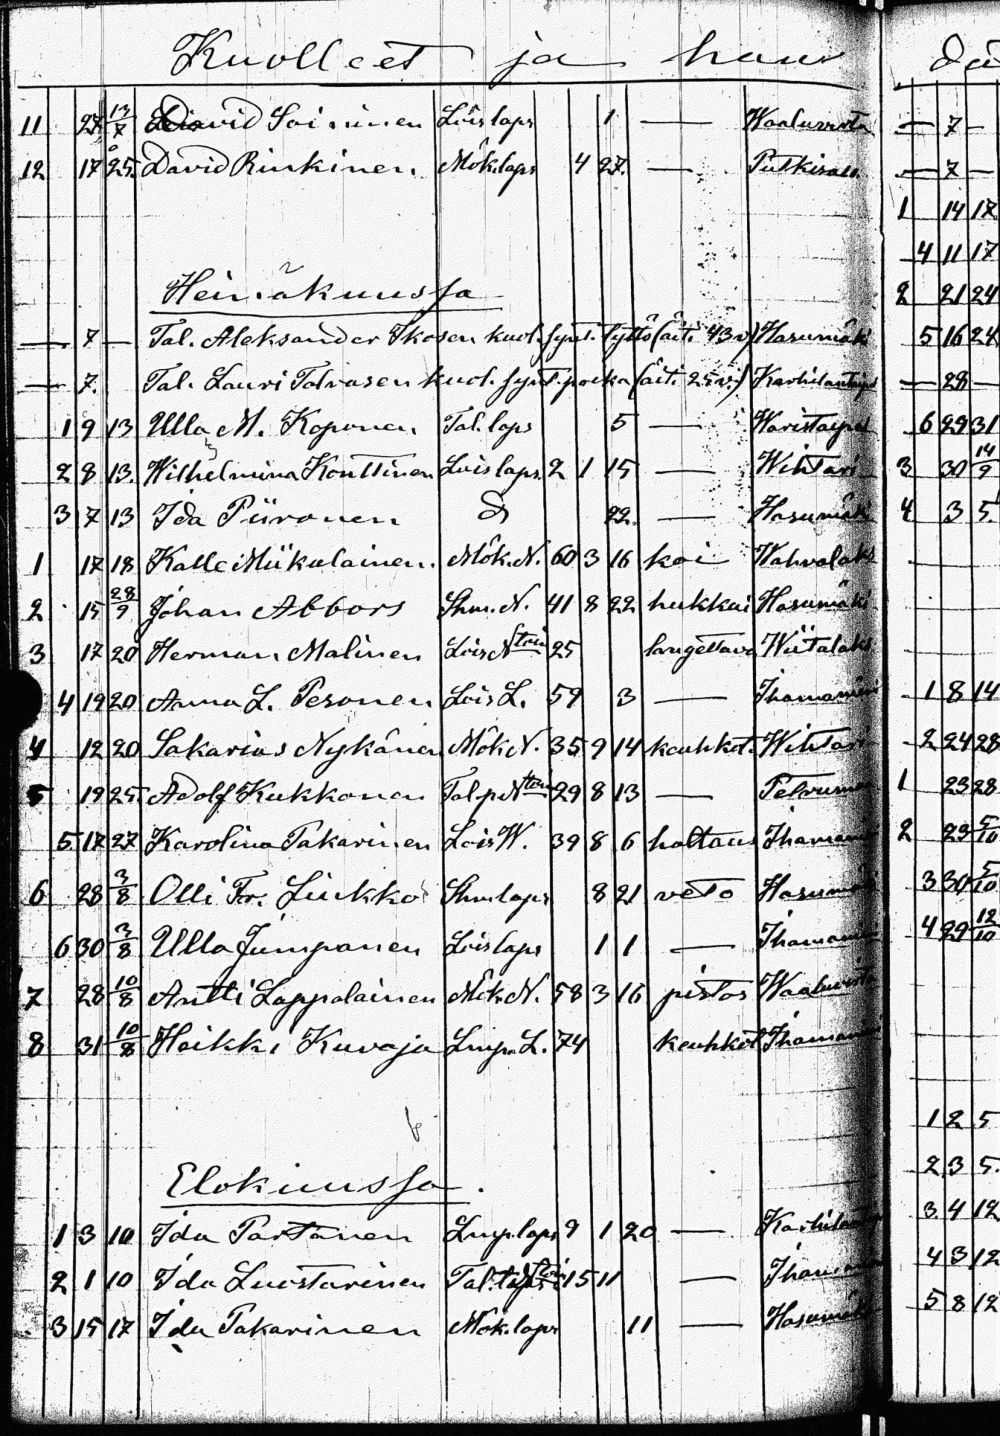 Kuolleet ja hau
11 27 13/7 David Soininen Loislaps 1 — Kaaluvirta
12 17 25 David Rinkinen Mök.laps 4 27. — Putkisalo
Heinäkuussa
— 7 — Tal. Aleksander Ikosen kuol. synt. tyttö (äiti 43 v) Hasumäki
— 7. Tal. Lauri Tolvasen kuol. synt. poika (äiti 25 v.)
1 9 13 Ulla M. Koponen Tal. laps 5 —
2 8 13. Wilhelmina Konttinen Loislaps. 2 1 15 — Wihtari
3 7 13 Ida Piironen 22. — Hasumäki
1 17 18 Kalle Miikulainen. Mök. N. 60 3 16 koi
2 15 28/9 Johan Abbors Shm. N. 41 8 22 hukkui Hasumäki
3 17 20 Herman Malinen Lois N 25 langettava
4 19 20 Anna L. Pesonen Lois L. 59 3 —
4 12 20 Sakarias Nykänen Mök N. 35 9 14 keuhkot. Wihtari
5 19 25 Adolf Kukkonen Tal.p. 29 8 13 —
5 17 27 Karolina Pakarinen Lois W. 39 8 6 haltaus
6 28 3/8 Olli Fr. Liukko Shm laps 8 21 veto Hasumäki
6 30 3/8 Ulla Jumpanen Loislaps 1 1 —
7 28 10/8 Antti Lappalainen Mök N. 58 3 16 pistos
8 31 10/8 Heikki Kuvaja Lmp. L. 74 keuhkot
Elokuussa.
1 3 10 Ida Partanen Lmp.laps 9 1 20 —
2 1 10 Ida Luostarinen Tal. 15 11 —
3 15 17 Ida Pakarinen Mök.laps 11 — Hasumäki
— 7 —
— 7 —
1 14 17
4 11 17
2 21 24
5 16 24
— 28 —
6 29 31
3 30 14/9
4 3 5.
1 8 14
2 24 28
1 23 28
2 23 5/10
3 30 5/10
4 29 12/10
1 2 5
2 3 5.
3 4 12
4 3 12
5 8 12